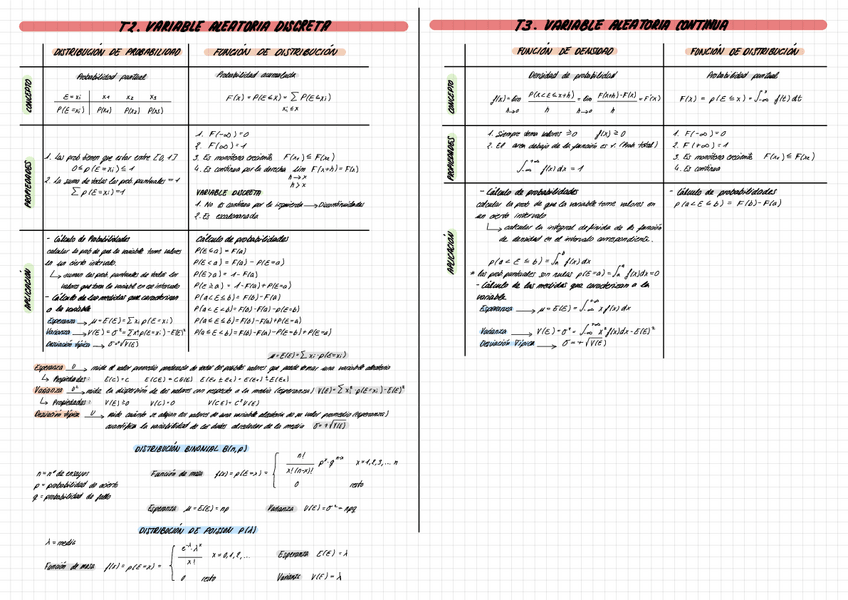 T2. VARIABLE ALEATORIA DISCRETA
DISTRIBUCIÓN DE PROBABILIDAD
FUNCIÓN DE DISTRIBUCIÓN
CONCEPTO
Probabilidad puntual
ξ=xi x1 x2 x3
P(ξ=xi) P(x1) P(x2) P(x3)
Probabilidad acumulada
F(x) = P(ξ≤x) = ∑ P(ξ≤xi)
xi≤x
PROPIEDADES
1. Las prob tienen que estar entre [0,1]
0≤p(ξ=xi)≤1
2. La suma de todas las prob puntuales = 1
∑p(ξ=xi)=1
1. F(-∞)=0
2. F(∞)=1
3. Es monótona creciente F(x1)≤F(x2)
4. Es continua por la derecha lim F(x+h)=F(x)
h→0
h>x
VARIABLE DISCRETA
1. No es continua por la izquierda → Discontinuidades
2. Es escalonada
APLICACIÓN
- Cálculo de Probabilidades
calcular la prob de que la variable tome valores
en un cierto intervalo.
↳ sumar las prob puntuales de todos los
valores que toma la variable en ese intervalo
- Cálculo de las medidas que caracterizan
a la variable
Esperanza → μ=E(ξ)=∑xi p(ξ=xi)
Varianza → V(ξ)=σ²=∑xi²p(ξ=xi)-E(ξ)²
Desviación típica → σ=√V(ξ)
Cálculo de probabilidades
P(ξ≤a)=F(a)
P(ξ<a)=F(a)-P(ξ=a)
P(ξ>a)=1-F(a)
P(ξ≥a)=1-F(a)+P(ξ=a)
P(a<ξ≤b)=F(b)-F(a)
P(a<ξ<b)=F(b)-F(a)-p(ξ=b)
P(a≤ξ≤b)=F(b)-F(a)+P(ξ=a)
P(a≤ξ<b)=F(b)-F(a)-P(ξ=b)+P(ξ=a)
μ=E(ξ)=∑xi·p(ξ=xi)
Esperanza → mide el valor promedio ponderado de todos los posibles valores que puede tomar una variable aleatoria
↳ Propiedades: E(c)=c E(cξ)=cE(ξ) E(ξ1±ξ2)=E(ξ1)±E(ξ2)
Varianza σ² → mide la dispersión de los valores con respecto a la media (esperanza) V(ξ)=∑xi²·p(ξ=xi)-E(ξ)²
↳ Propiedades: V(ξ)≥0 V(c)=0 V(cξ)=c²V(ξ)
Desviación típica → mide cuánto se alejan los valores de una variable aleatoria de su valor promedio (esperanza)
cuantifica la variabilidad de los datos alrededor de la media σ=+√V(ξ)
DISTRIBUCIÓN BINOMIAL B(n,p)
n=nº de ensayos
p=probabilidad de acierto
q=probabilidad de fallo
Función de masa f(x)=p(ξ=x)= { n!/x!(n-x)! pˣ·qⁿ⁻ˣ x=1,2,3,...n
0 resto
Esperanza μ=E(ξ)=np Varianza V(ξ)=σ²=npq
DISTRIBUCIÓN DE POISSON P(λ)
λ=media
Función de masa f(x)=p(ξ=x)= { e^-λ·λˣ/x! x=0,1,2,...
0 resto
Esperanza E(ξ)=λ
Varianza V(ξ)=λ
T3. VARIABLE ALEATORIA CONTINUA
FUNCIÓN DE DENSIDAD
FUNCIÓN DE DISTRIBUCIÓN
CONCEPTO
Densidad de probabilidad
f(x)=lim P(x<ξ≤x+h)/h = lim F(x+h)-F(x)/h = F'(x)
h→0 h→0
Probabilidad puntual
F(x) = p(ξ≤x)=∫-∞ˣ f(t)dt
PROPIEDADES
1. Siempre toma valores ≥0 f(x)≥0
2. El area debajo de la función es 1 (Prob total)
∫-∞^+∞ f(x)dx=1
1. F(-∞)=0
2. F(+∞)=1
3. Es monótona creciente F(x1)≤F(x2)
4. Es continua
APLICACIÓN
- Cálculo de probabilidades
calcular la prob de que la variable tome valores en
un cierto intervalo
↳ calcular la integral definida de la función
de densidad en el intervalo correspondiente.
p(a<ξ≤b)=∫ₐᵇ f(x)dx
* las prob puntuales son nulas p(ξ=a)=∫ₐᵃ f(x)dx=0
- Cálculo de las medidas que caracterizan a la
variable.
Esperanza → μ=E(ξ)=∫-∞^+∞ x f(x)dx
Varianza → V(ξ)=σ²=∫-∞^+∞ x²f(x)dx-E(ξ)²
Desviación Típica → σ=+√V(ξ)
- Cálculo de probabilidades
p(a<ξ≤b) = F(b)-F(a)